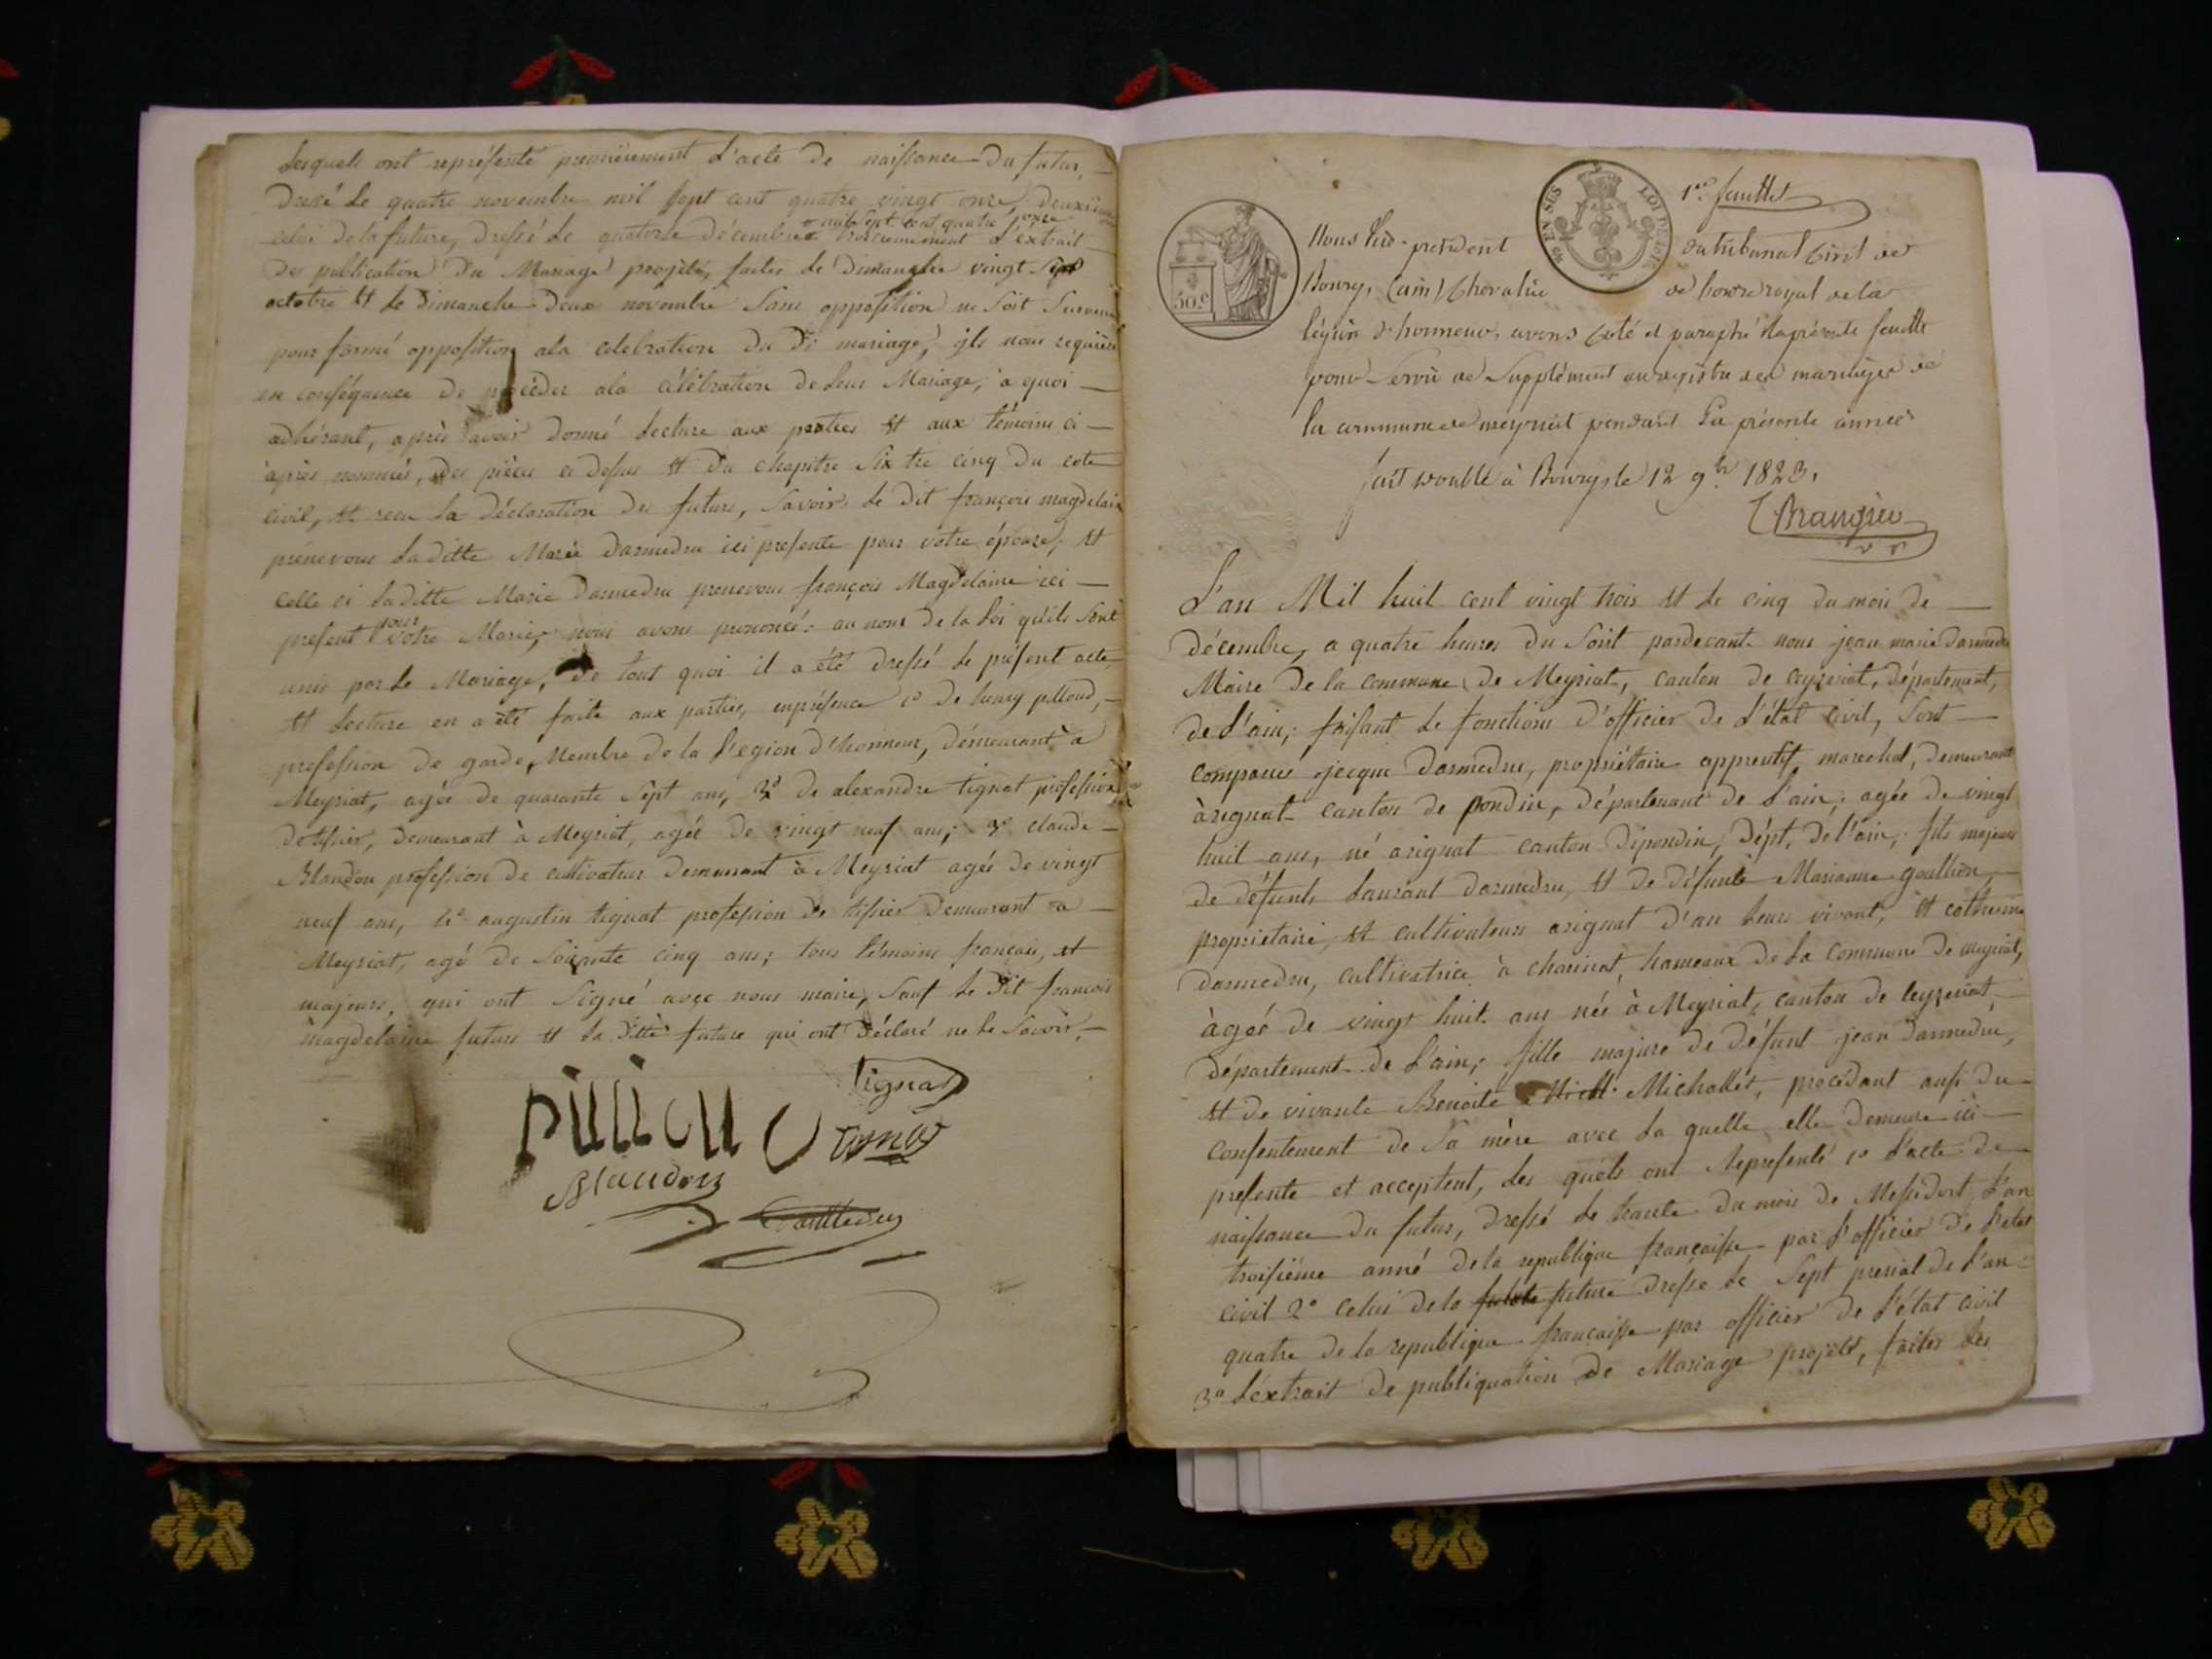 Lesquels ont représenté premièrement l'acte de naissance du futur,
Dressé le quatre novembre mil sept cent quatre vingt onze, deuxième
celui de la future, dressé le quatorze décembre mil sept cent quatre onze troisiemement l'extrait
des publication du Mariage projeté, faites le Dimanche vingt sept
octobre et le Dimanche deux novembre sans opposition ne soit survenu
pour formé opposition a la celebration du dt mariage, ils nous requiere
en conséquence de procéder a la célébration de leur Mariage, a quoi
adhérant, après avoir donné lecture aux parties et aux témoins ci
après nommés, des pièces ci dessus et du chapitre six tre cinq du cote
civil, et recu la déclaration des futurs, savoir, le dit françois magdelain
prénevous laditte Marie Darmedru ici presente pour votre épouze, et
celle ci laditte Marie Darmedru prenevous françois Magdelaine ici
present pour votre Marie, nous avons prononcé : au nom de la loi qu'ils sont
unis par le Mariage, de tout quoi il a été dressé le présent acte
et lecture en a été faite aux parties, enprésence 1o de henry pilloud,
profession de garde, Membre de la Légion d'honneur, démeurant à
Meyriat, agée de quarante sept ans, 2o de alexandre tignat profession
de tissier, demeurant à Meyriat, agée de vingt neuf ans; 3o claude
Blandon profession de cultivateur demeurant à Meyriat agée de vingt
neuf ans, 4o augustin tignat profession de tissier demeurant a
Meyriat, agé de Soixante cinq ans; tous témoins francais, et
majeurs, qui ont signé avec nous maire, sauf le dit francois
magdelaine futurs et la ditte future qui ont déclaré ne le savoir.
Tignat
Pilloud
Blaudon
Darmedru
1re feuillet
Nous vice-president du tribunal Civil de
Bourg, (ain) Chevalier de l'ordre royal de la
légion d'honneur, avons coté et paraphé la présente feuille
pour servir de Supplément au registre des mariages de
la commune de meyriat pendant la présente année
fait double à Bourg, le 12 9bre 1823.
50.c
LOI DE 1816
EN SUS
L'an Mil huit cent vingt trois et le cinq du mois de
décembre, a quatre heures du soir pardevant nous jean marie Darmedru
Maire de la commune de Meyriat, canton de ceyzeriat, département,
de l'ain; faisant le fonctions d'officier de l'état civil, sont
comparues jacque Darmedru, propriétaire apprentif marechal, demeurant
àrignat canton de pondin, département de l'ain; agée de vingt
huit ans, né arignat canton dépondin, dépt. de l'ain, fils majeur
de défunts Laurant darmedru, et de défunte Marianne goullion,
propriétaire, et cultivateurs arignat d'au leurs vivant, et catherine
darmedru, cultivatrice à charinat, hameaux de la Commune de meyriat,
àgée de vingt huit ans née à Meyriat, canton de ceyzeriat,
département de l'ain; fille majure de défunt jean Darmedru,
et de vivante Benoite Michallet, procédant ausi du
consentement de sa mère avec la quelle elle demeure ici
presente et acceptent, les quels ont représenté 1o l'acte de
naissance du futur, dressé le trante du mois de Messidort l'an
troisiéme anné de la republique françaisse par l'officier de l'etat
civil 2o celui de la future future dresse le sept prerial de l'an
quatre de la republique francaisse par officier de l'état civil
3o l'éxtrait de publiquation de Mariage projeté, faites les